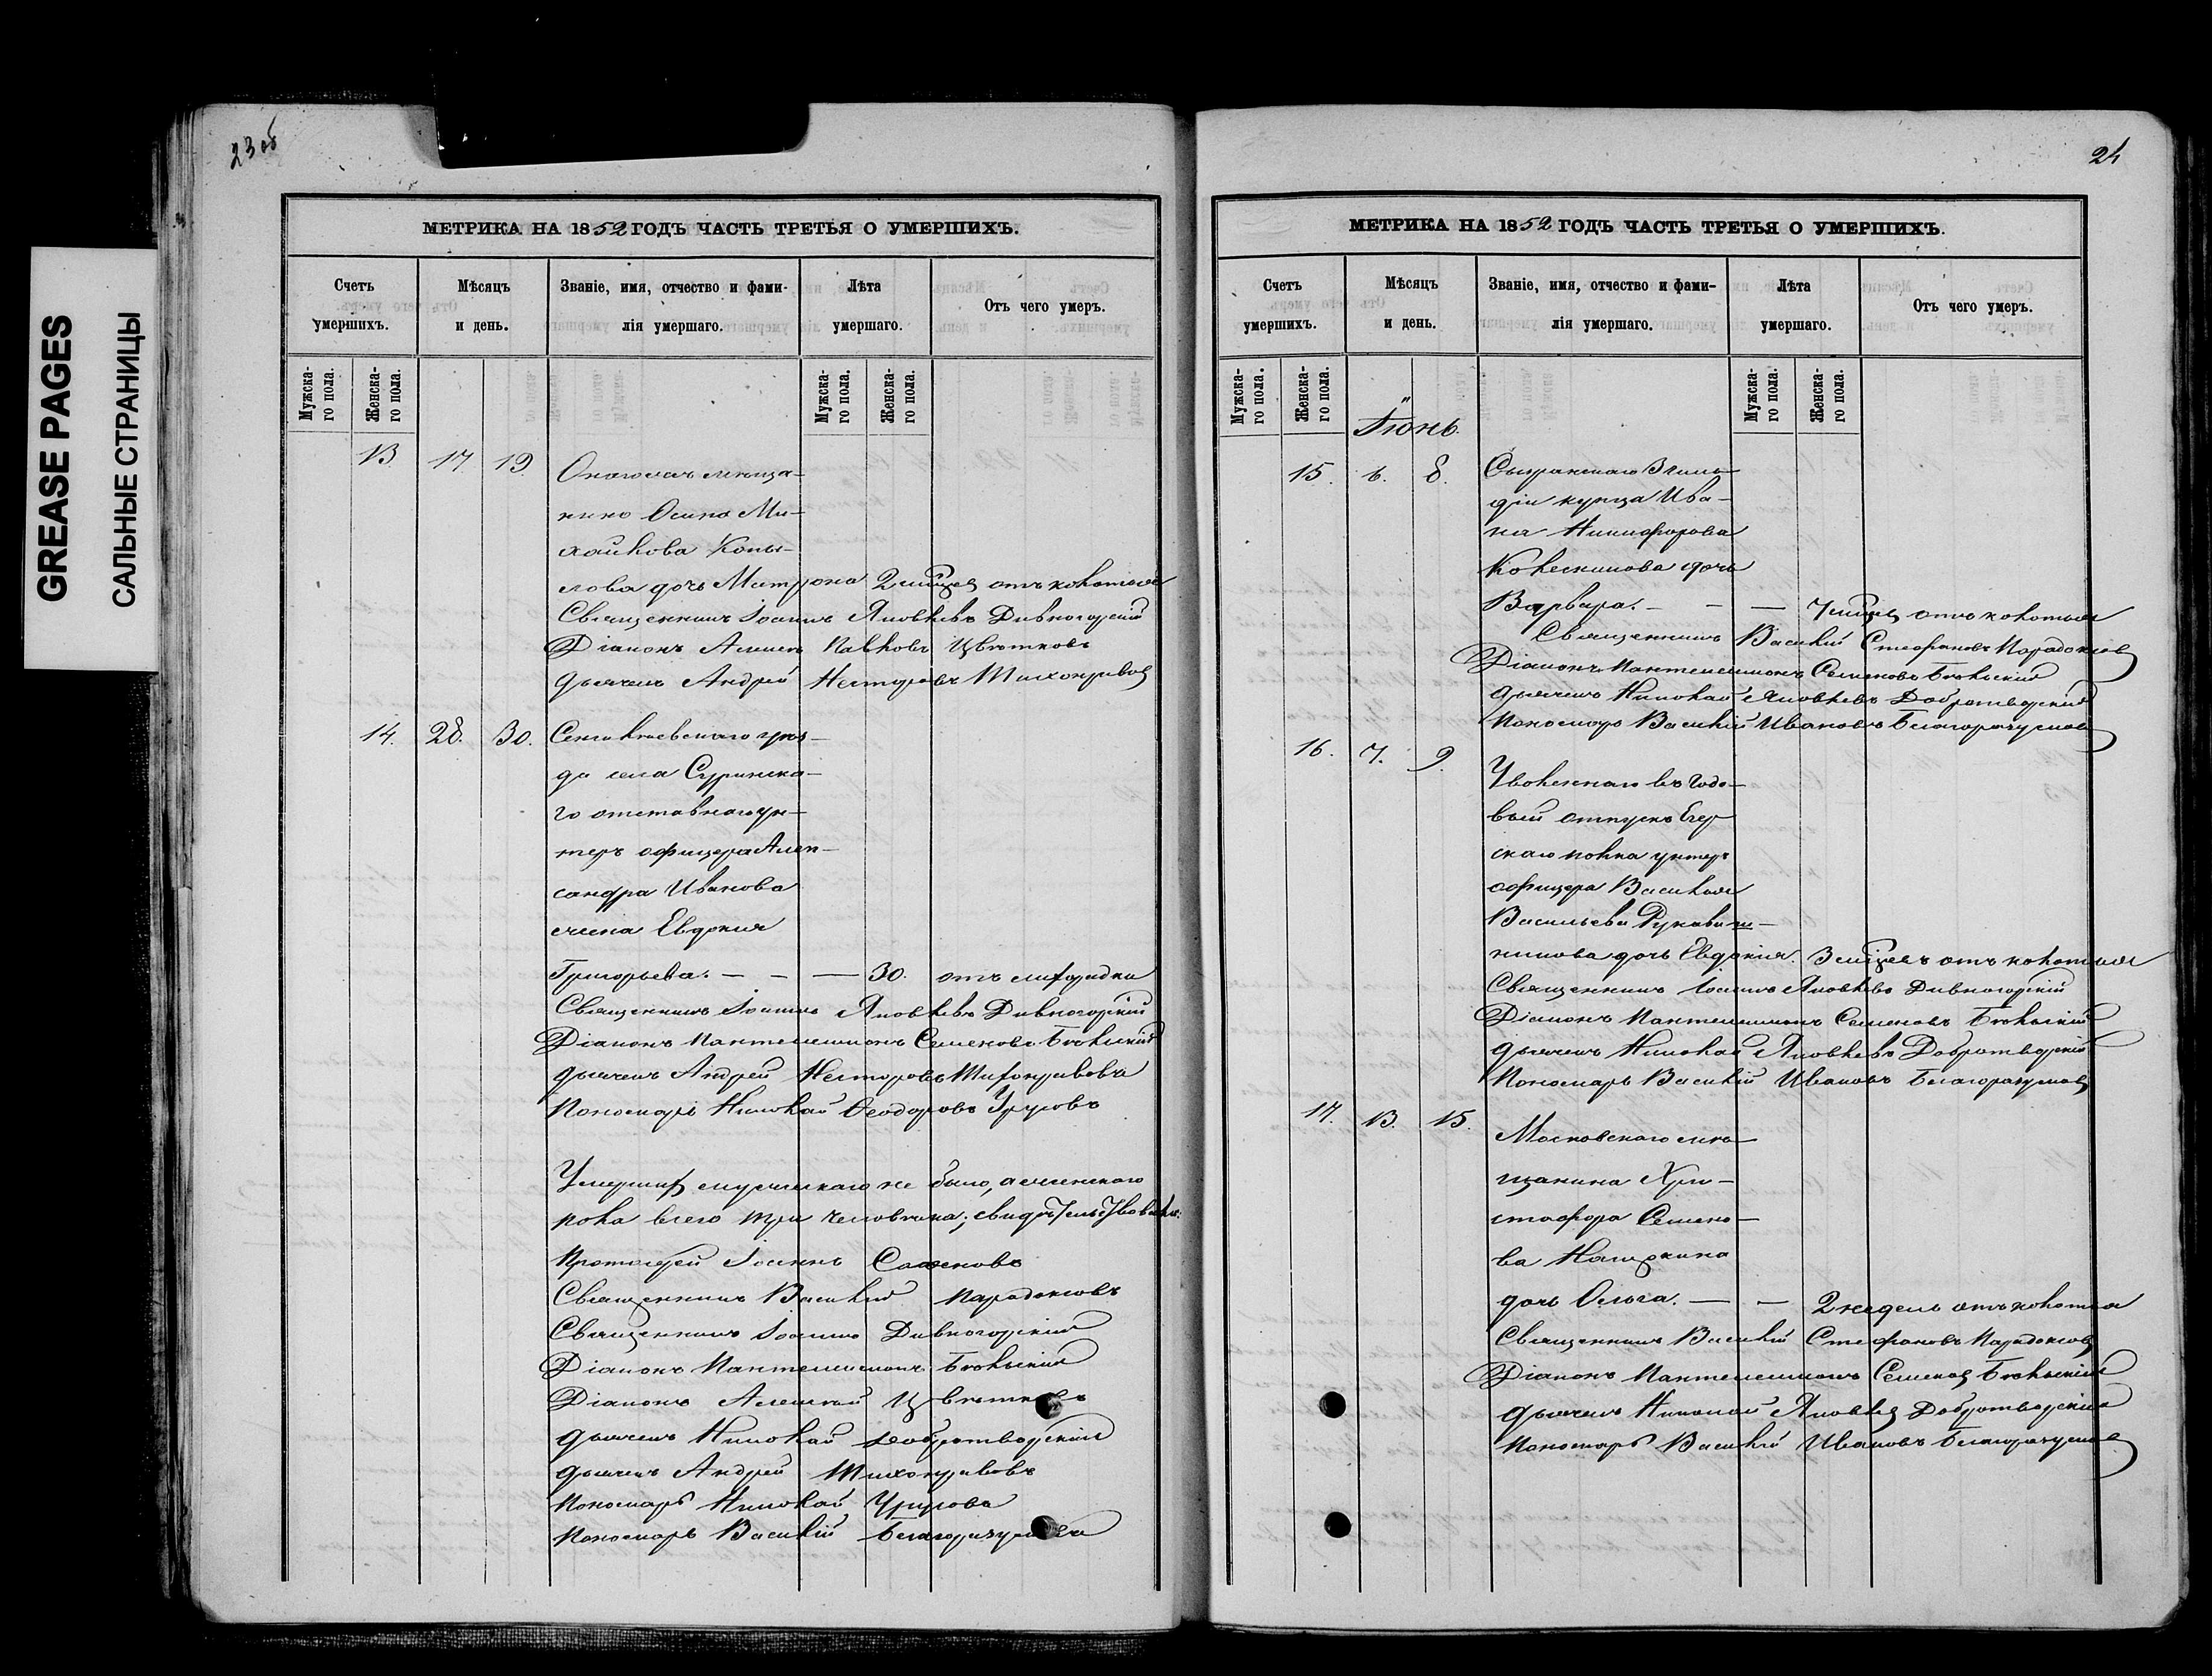 GREASE PAGES
САЛЬНЫЕ СТРАНИЦЫ
23 об
МЕТРИКА НА 1852 ГОДЪ ЧАСТЬ ТРЕТЬЯ О УМЕРШИХЪ.
Счетъ умершихъ.
Мѣсяцъ и день.
Званіе, имя, отчество и фамилія умершаго.
Лѣта умершаго.
Отъ чего умеръ.
Мужскаго пола.
Женскаго пола.
Мужскаго пола.
Женскаго пола.
13. 17. 19.
Осипа Ми-
хайлова Копы-
лова дочь Матрона 2 мѣсяц отъ колотья
Священникъ Іоаннъ Яковлевъ Дивногорскій
Діаконъ Алексѣй Павловъ Цвѣтковъ
дьячекъ Андрей Несторовъ Тихонравов
14. 28. 30. Сенгилѣевскаго уѣз-
да села Суринска-
го отставнаго ун-
теръ офицера Алек-
сандра Иванова
жена Евдокия
Григорьева. — — — 30. отъ лихорадки
Священникъ Іоаннъ Яковлевъ Дивногорскій
Діаконъ Пантелеимонъ Семеновъ Бѣльскій
дьячекъ Андрей Несторовъ Тихонравовъ
Пономарь Николай Ѳеодоровъ Урусовъ
Умерших мужескаго не было, а женскаго
пола всего три человѣка; свидѣтельствовали:
Протоіерей Іоаннъ
Священникъ Василій Парадоксовъ
Священникъ Іоаннъ Дивногорскій
Діаконъ Пантелеимонъ Бѣльскій
Діаконъ Алексѣй Цвѣтковъ
дьячекъ Николай Добротворскій
дьячекъ Андрей Тихонравовъ
Пономарь Николай Урусовъ
Пономарь Василій Благоразумовъ
24
МЕТРИКА НА 1852 ГОДЪ ЧАСТЬ ТРЕТЬЯ О УМЕРШИХЪ.
Счетъ умершихъ.
Мѣсяцъ и день.
Званіе, имя, отчество и фамилія умершаго.
Лѣта умершаго.
Отъ чего умеръ.
Мужскаго пола.
Женскаго пола.
Мужскаго пола.
Женскаго пола.
Іюнь.
15. 6. 8. Сызранскаго 3 гиль-
діи купца Ива-
на Никифорова
дочь
Варвара. — — — 7 мѣсяц отъ колотья
Священникъ Василій Стефановъ Парадоксов
Діаконъ Пантелеимонъ Семеновъ Бѣльскій
дьячекъ Николай Яковлевъ Добротворскій
Пономарь Василій Ивановъ Благоразумов
16. 7. 9.
Уволеннаго въ годо-
вый отпускъ Егер
скаго полка унтеръ
офицера Василья
Васильева Рукавиш-
никова дочь Евдокия. 3 мѣсяцевъ отъ колотья
Священникъ Іоаннъ Яковлевъ Дивногорскій
Діаконъ Пантелеимонъ Семеновъ Бѣльскій
дьячекъ Николай Яковлевъ Добротворскій
Пономарь Василій Ивановъ Благоразумов
17. 13. 15.
Московскаго мѣ-
щанина Хри-
стофора Семено-
ва Нащокина
дочь Ольга. — — 2 недель отъ колотья
Священникъ Василій Стефановъ Парадоксов
Діаконъ Пантелеимонъ Семенов Бѣльскій
дьячекъ Николай Яковлев Добротворскій
Пономарь Василій Ивановъ Благоразумов